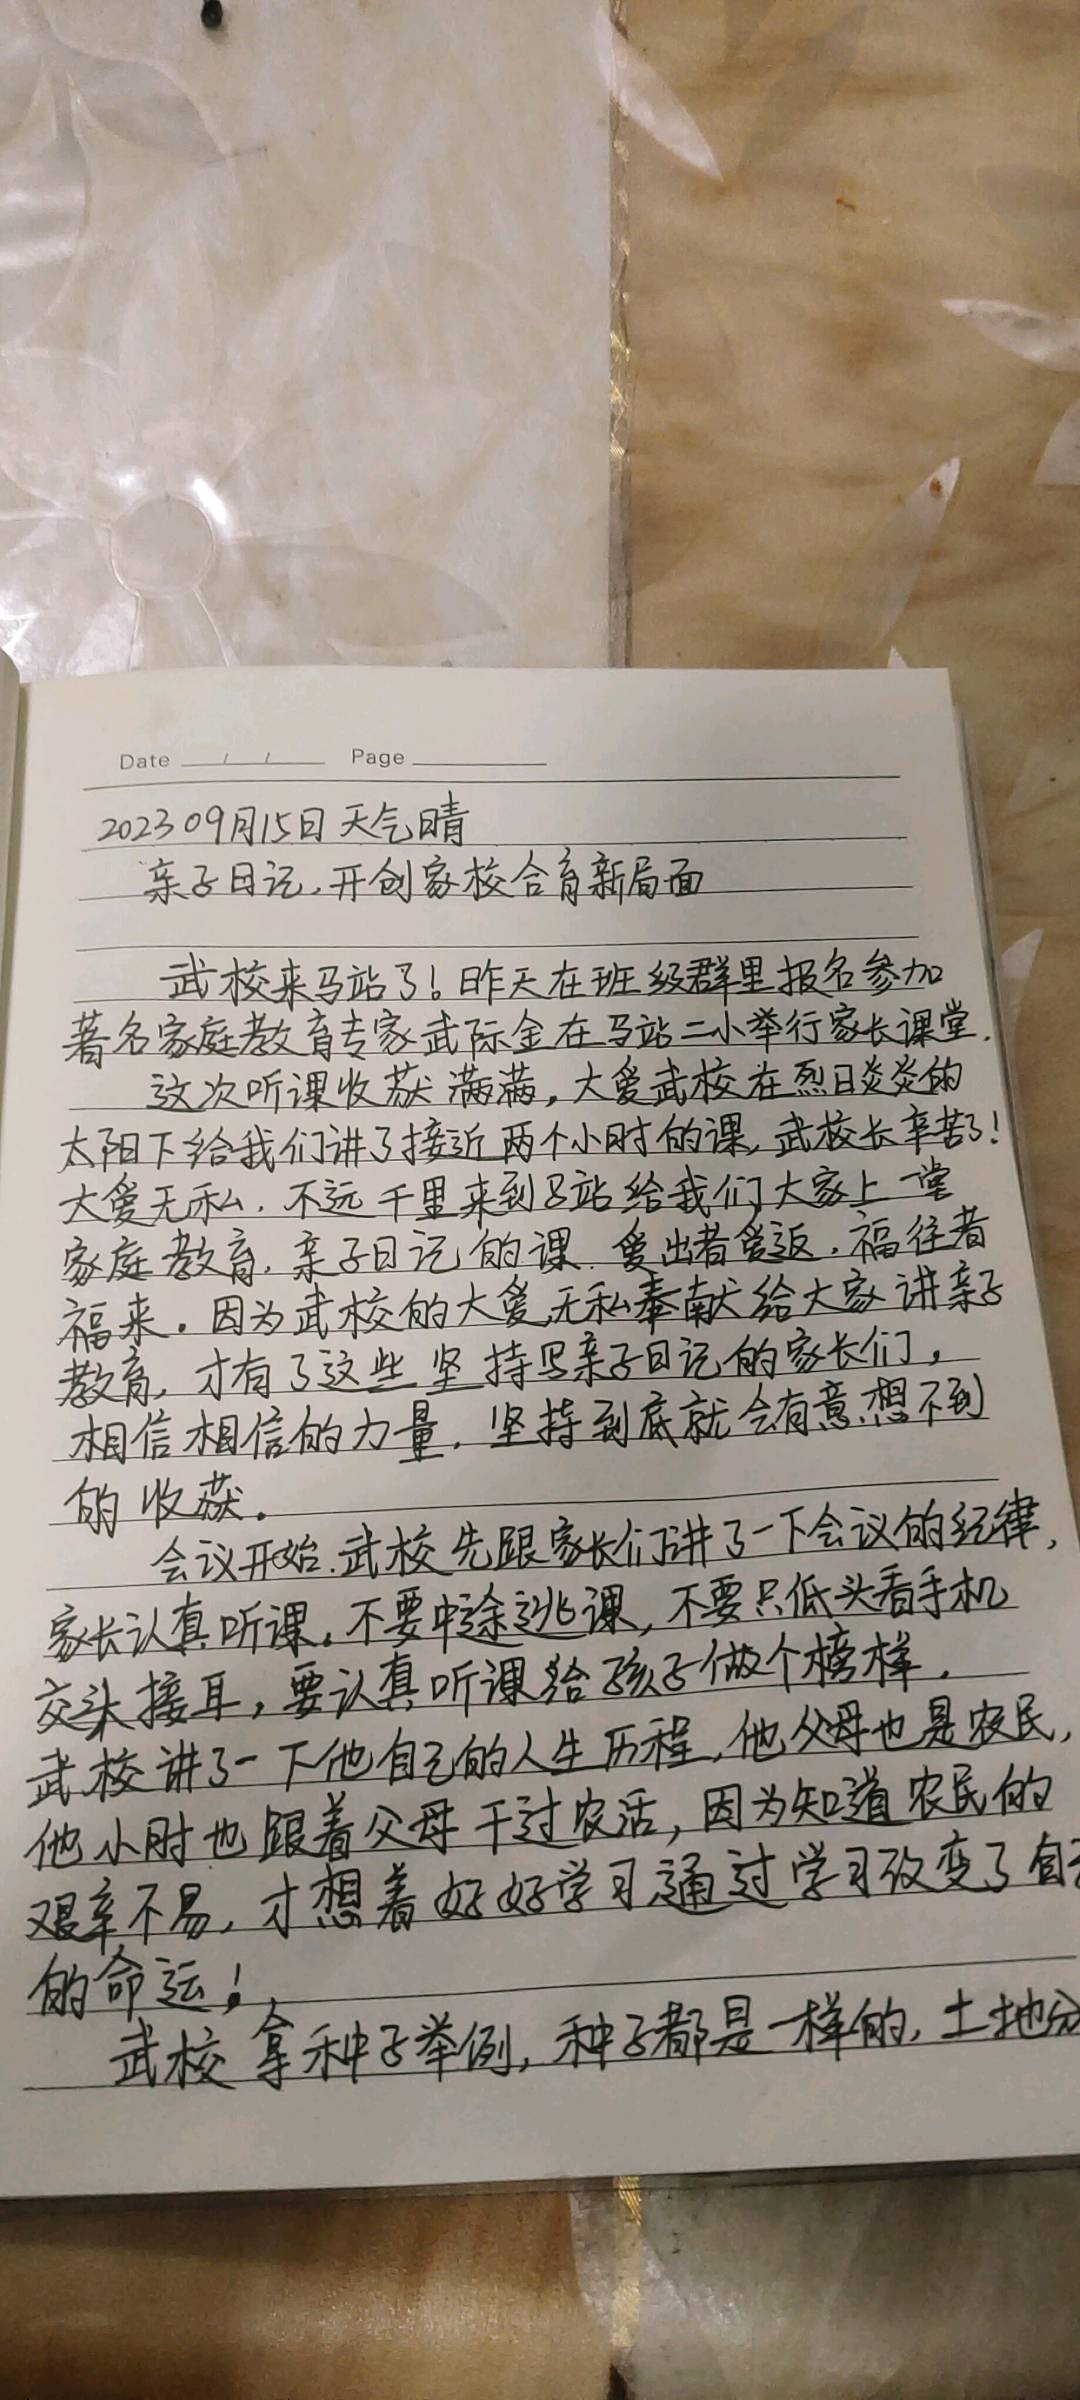 Date / / Page
2023 09月15日 天气晴
亲子日记,开创家校合育新局面
武校来马站了!昨天在班级群里报名参加
著名家庭教育专家武际金在马站二小举行家长课堂.
这次听课收获满满,大爱武校在烈日炎炎的
太阳下给我们讲了接近两个小时的课,武校长辛苦了!
大爱无私.不远千里来到马站给我们大家上一堂
家庭教育,亲子日记的课.爱出者爱返,福往者
福来。因为武校的大爱,无私奉献给大家讲亲子
教育,才有了这些坚持写亲子日记的家长们,
相信相信的力量.坚持到底就会有意想不到
的收获。
会议开始.武校先跟家长们讲了一下会议的纪律,
家长认真听课。不要中途逃课,不要只低头看手机
交头接耳,要认真听课给孩子做个榜样.
武校讲了一下他自己的人生历程,他父母也是农民,
他小时也跟着父母干过农活,因为知道农民的
艰辛不易,才想着好好学习,通过学习改变了自
的命运!
武校拿种子举例,种子都是一样的,土地分